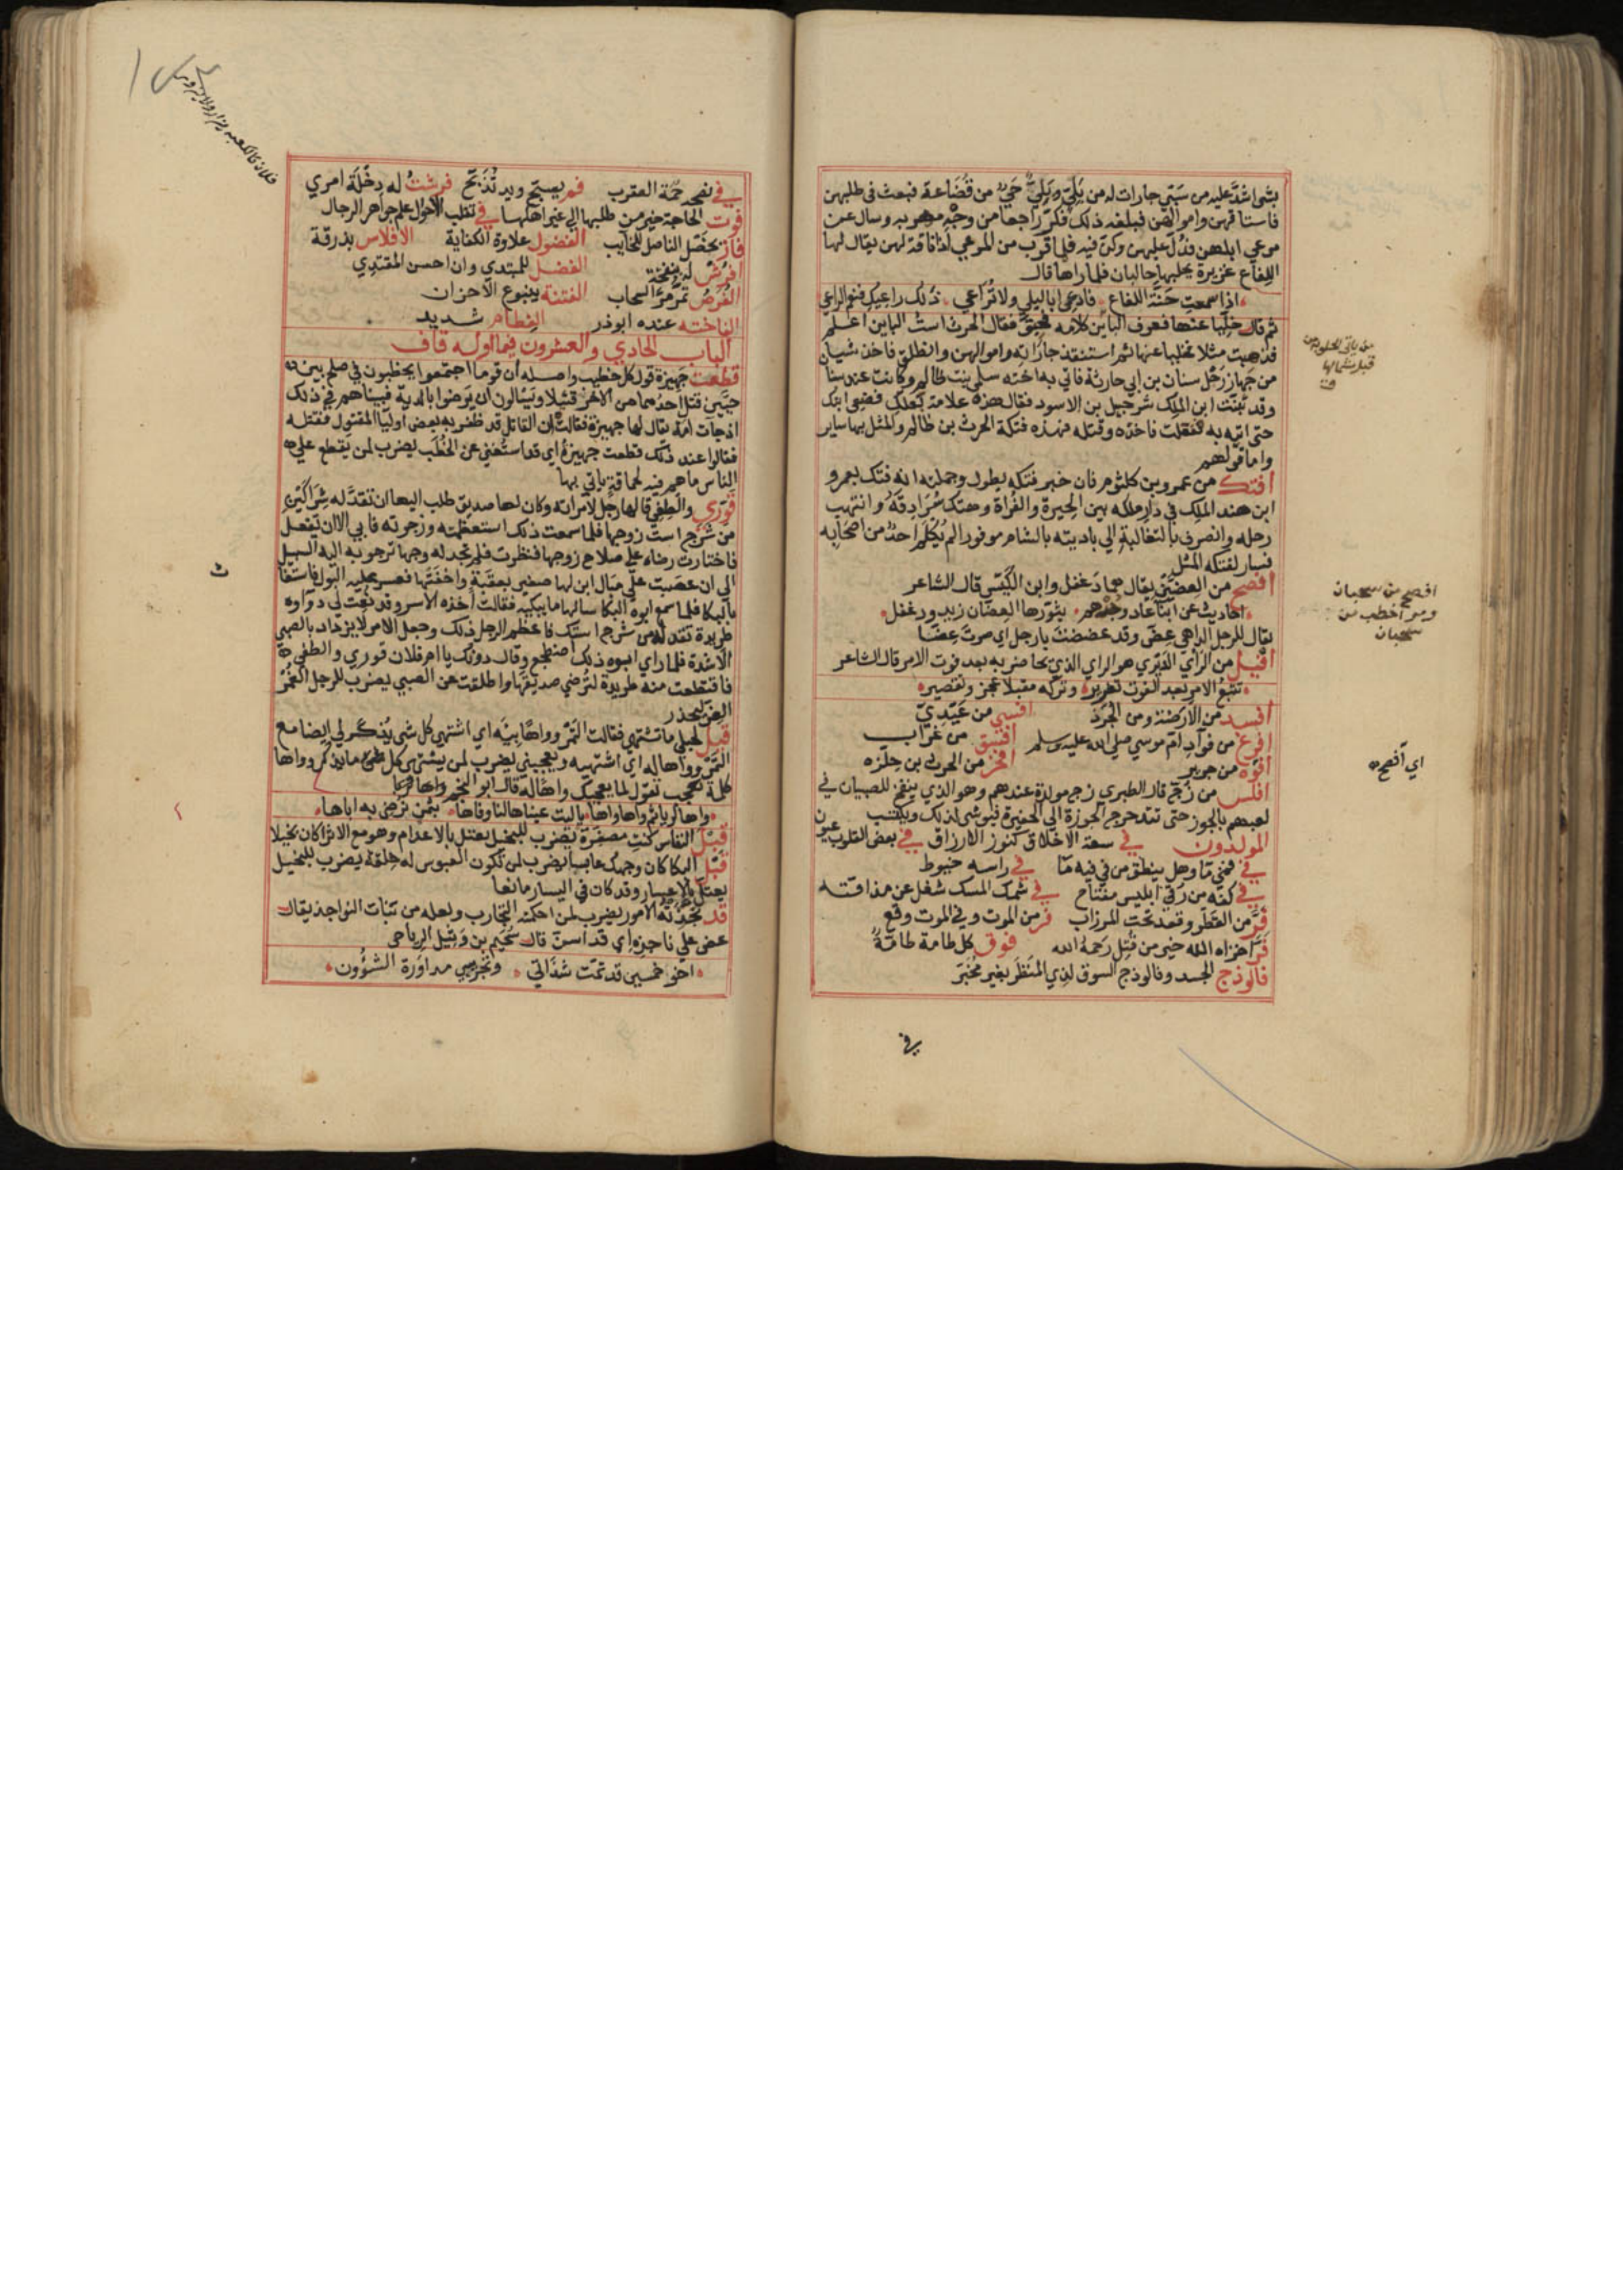 بشي اشد عليه من سبي جارات له من بلي وبلي حي من قضاعة فبعث في طلبهن
فاستاقهن واموالهن فبلغه ذلك فكر راجعا من وجه مهربه وسال عن
مرعي ابلهن فدل عليهن وكن فيه فلما قرب من المرعي اذا ناقة لهن يقال لها
اللفاع غزيرة يحلبها حالبان فلما راها قال
اذا سمعت حنة اللفاع فادعي ابا ليلي ولا تراعي ذلك راعيك فنعم الراعي
ثم قال خليا عنها فعرف الباين كلامه فحبق فقال الحرث است الباين اعلم
فذهبت مثلا فخليا عنها ثم استنقذ جاراته واموالهن وانطلق فاخذ شيأ
من جهاز رحل سنان بن ابي حارثة فاتي به اخته سلمي بنت ظالم وكانت عند سنا
وقد تبنت ابن الملك شرحبيل بن الاسود فقال هذه علامة بعلك فضعي ابنك
حتى اتيه به ففعلت فاخذه وقتله فهذه فتكة الحرث بن ظالم والمثل بها ساير
واما قولهم
افتك من عمرو بن كلثوم فان خبر فتكه يطول وجملته انه فتك بعمرو
ابن هند الملك في دار ملكه بين الحيرة والفراة وهتك سرادقه وانتهب
رحله وانصرف بالتغالبة الي باديته بالشام موفورا لم يكلم احد من اصحابه
فسار لفتكه المثل
افصح من العضين يقال هما دغفل وابن الكيس قال الشاعر
احاديث عن ابنا عاد وجرهم يثورها العضان زيد ودغفل
يقال للرجل الداهي عض وقد عضضت يا رجل اي صرت عضا
افيل من الراي الدبري هو الراي الذي يحاضر به بعد فوت الامر قال الشاعر
تتبع الامر بعد الفوت تغرير وتركه مقبلا عجز وتقصير
افسد من الارضة ومن الجرذ افسي من عبدي
افرغ من فواد ام موسي صلي الله عليه وسلم افسق من غراب
افوه من جرير افخر من الحرث بن حلزه
افلس من
لعبهم بالجوز حتى تتدحرج الجوزة الي الحفيرة
المولدون في سعة الاخلاق كنوز الارزاق في بعض القلوب عيون
في فمي ما وهل ينطق من في فيه ما في راسه خيوط
في كفه من رقي ابليس مفتاح في شمك المسك شغل عن مذاقته
فر من القطر وقعد تحت المرزاب فر من الموت وفي الموت وقع
فر اخزاه الله خير من قتل رحمه الله فوق كل طامة طامة
فالوذج الجسد وفالوذج السوق لذي المنظر بغير مخبر
افصح من سحبان
ومر اخطب من
سحبان
اي افصح
في
في نصحه حمة العقرب فم يسبح ويد تذبح فرشت له دخلة امري
فوت الحاجة خير من طلبها الي غير اهلها في تقلب الاحوال علم جواهر الرجال
فاز بخصل الناصل للخايب الفضول علاوة الكفاية الافلاس بذرقة
الفضل للمبتدي وان احسن المقتدي
الفرص تمر مر السحاب الفتنة ينبوع الاحزان
الفاخته عنده ابو ذر الفطام شديد
الباب الحادي والعشرون فيما اوله قاف
قطعت جهيزة قول كل خطيب واصله ان قوما اجتمعوا يخطبون في صلح بين
حيين قتل احدهما من الاخر قتيلا ويسالون ان يرضوا بالدية فبينا هم في ذلك
اذ جات امة يقال لها جهيزة فقالت ان القاتل قد ظفر به بعض اوليا المقتول فقتله
فقالوا عند ذلك قطعت جهيزة اي قد استغني عن الخطب يضرب لمن يقطع علي
الناس ما هم فيه لحماقة ياتي بها
قوري والطفي قالها رجل لامراته وكان لها صديق طلب اليها ان تقد له شراكين
من شرج است زوجها فلما سمعت ذلك استعظمته وزجرته فابي الا ان تفعل
فاختارت رضاه علي صلاح زوجها فنظرت فلم تجد له وجها ترجو به اليه السبيل
الي ان عصبت علي مبال ابن لها صغير بعقبة واخفتها فعسر عليه البول فاستغا
بالبكا فلما سمع ابوه البكا سالها ما يبكيه فقالت اخذه الاسر وقد نعت لي دواوه
طريدة تقد له من شرج استك فاعظم الرجل ذلك وجعل الامر لا يزداد بالصبي
الا شدة فلما راي ابوه ذلك اضطجع وقال دونك يا ام فلان قوري والطفي
فاقتطعت منه طريدة لترضي صديقها واطلقت عن الصبي يضرب للرجل الغمر
الغر ليحذر
قيل لحبلي ما تشتهي فقالت التمر وواها بيه اي اشتهي كل شي يذكر لي ايضا مع
التمر وواها له اي اشتهيه ويعجبني يضرب لمن يشتهي كل ما يذكر وواها
كلمة تعجب تقول لما يعجبك واها له قال ابو النجم
واها لريا ثم واها واها يا ليت عيناها لنا وفاها بثمن نرضي به اباها
قبل النفاس كنت مصفرة يضرب للبخيل يعتل بالاعدام وهو مع الاثرا كان بخيلا
قبل البكا كان وجهك عابسا يضرب لمن تكون العبوس له خلقة يضرب للبخيل
يعتل بالاعسار وقد كان في اليسار مانعا
قد نجذته الامور يضرب لمن احكمته التجارب ولعله من نبات النواجذ يقال
عض علي ناجذه اي قد اسن قال سحيم بن وثيل الرياحي
اخو خمسين قد تمت شذاتي ونجذني مداورة الشؤون